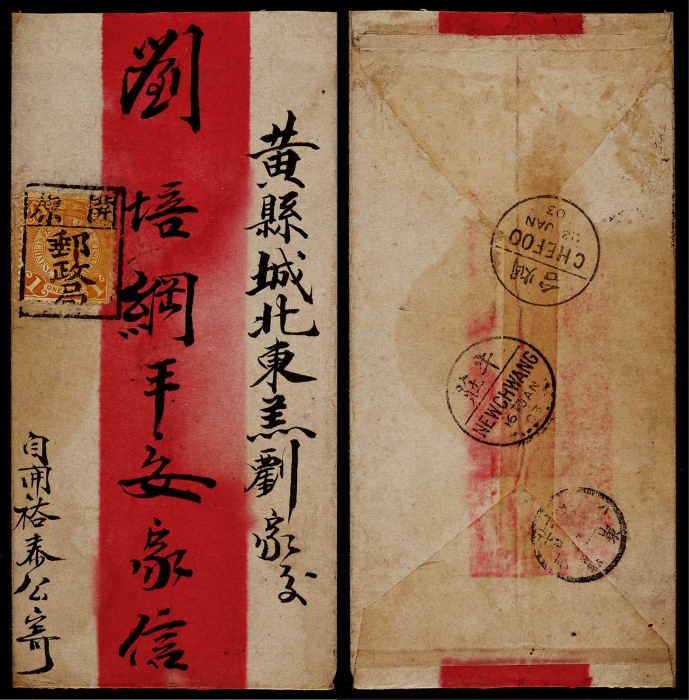 黃縣城北東羔劉家交
劉培綱平安家信
開原
郵政局
1
自開裕泰公寄
CHEFOO
JAN
03
烟台
牛莊
NEWCHWANG
16 JAN
03